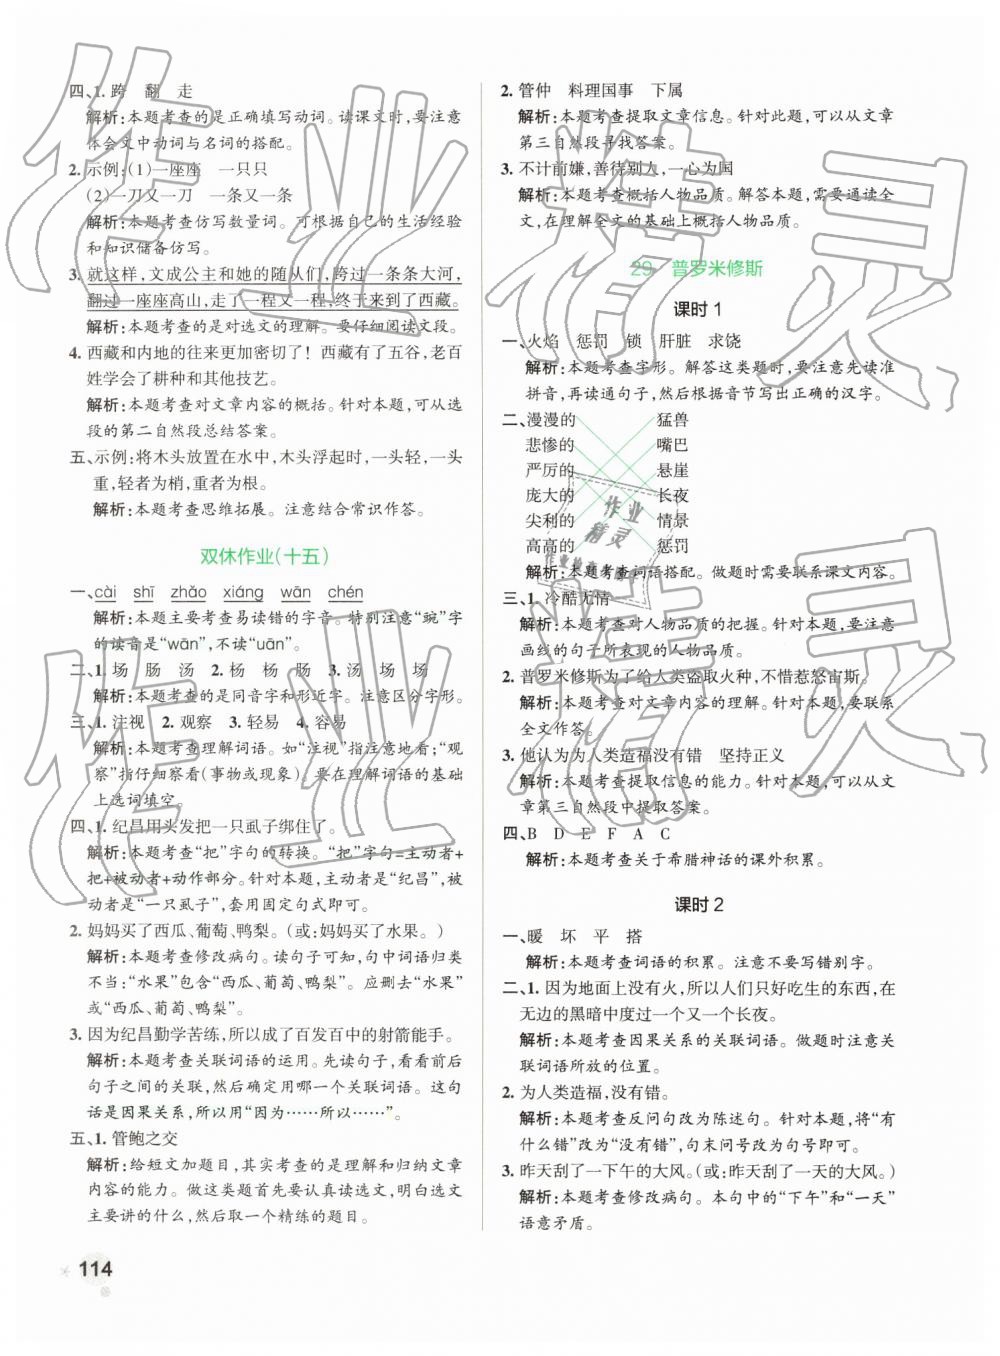 四、1. 跨　翻　走
解析:本题考查的是正确填写动词。读课文时,要注意
体会文中动词与名词的搭配。
2. 示例:(1)一座座　一只只
(2)一刀又一刀　一条又一条
解析:本题考查仿写数量词。可根据自己的生活经验
和知识储备仿写。
3. 就这样,文成公主和她的随从们,跨过一条条大河,
翻过一座座高山,走了一程又一程,终于来到了西藏。
解析:本题考查的是对选文的理解。要仔细阅读文段。
4. 西藏和内地的往来更加密切了！西藏有了五谷,老百
姓学会了耕种和其他技艺。
解析:本题考查对文章内容的概括。针对本题,可从选
段的第二自然段总结答案。
五、示例:将木头放置在水中,木头浮起时,一头轻,一头
重,轻者为梢,重者为根。
解析:本题考查思维拓展。注意结合常识作答。
双休作业(十五)
一、cài　shī　zhǎo　xiáng　wān　chén
解析:本题主要考查易读错的字音。特别注意“豌”字
的读音是“wān”,不读“uān”。
二、1. 场　肠　汤　2. 杨　杨　肠　3. 汤　场　场
解析:本题考查的是同音字和形近字。注意区分字形。
三、1. 注视　2. 观察　3. 轻易　4. 容易
解析:本题考查理解词语。如“注视”指注意地看;“观
察”指仔细察看(事物或现象)。要在理解词语的基础
上选词填空。
四、1. 纪昌用头发把一只虱子绑住了。
解析:本题考查“把”字句的转换。“把”字句=主动者+
把+被动者+动作部分。针对本题,主动者是“纪昌”,被
动者是“一只虱子”,套用固定句式即可。
2. 妈妈买了西瓜、葡萄、鸭梨。(或:妈妈买了水果。)
解析:本题考查修改病句。读句子可知,句中词语归类
不当:“水果”包含“西瓜、葡萄、鸭梨”。应删去“水果”
或“西瓜、葡萄、鸭梨”。
3. 因为纪昌勤学苦练,所以成了百发百中的射箭能手。
解析:本题考查关联词语的运用。先读句子,看看前后
句子之间的关联,然后确定用哪一个关联词语。这句
话是因果关系,所以用“因为……所以……”。
五、1. 管鲍之交
解析:给短文加题目,其实考查的是理解和归纳文章
内容的能力。做这类题首先要认真读选文,明白选文
主要讲的什么,然后取一个精练的题目。
114
2. 管仲　料理国事　下属
解析:本题考查提取文章信息。针对此题,可以从文章
第三自然段寻找答案。
3. 不计前嫌,善待别人,一心为国
解析:本题考查概括人物品质。解答本题,需要通读全
文,在理解全文的基础上概括人物品质。
29　普罗米修斯
课时 1
一、火焰　惩罚　锁　肝脏　求饶
解析:本题考查字形。解答这类题时,要注意先读准
拼音,再读通句子,然后根据音节写出正确的汉字。
二、漫漫的　猛兽
悲惨的　嘴巴
严厉的　悬崖
庞大的　长夜
尖利的　情景
高高的　惩罚
解析:本题考查词语搭配。做题时需要联系课文内容。
三、1. 冷酷无情
解析:本题考查对人物品质的把握。解答本题,要注意
画线的句子所表现的人物品质。
2. 普罗米修斯为了给人类盗取火种,不惜惹怒宙斯。
解析:本题考查对文章内容的理解。针对本题,要联系
全文作答。
3. 他认为为人类造福没有错　坚持正义
解析:本题考查提取信息的能力。针对本题,可以从文
章第三自然段中提取答案。
四、B　D　E　F　A　C
解析:本题考查关于希腊神话的课外积累。
课时 2
一、暖　坏　平　搭
解析:本题考查词语的积累。注意不要写错别字。
二、1. 因为地面上没有火,所以人们只好吃生的东西,在
无边的黑暗中度过一个又一个长夜。
解析:本题考查因果关系的关联词语。做题时注意关
联词语所放的位置。
2. 为人类造福,没有错。
解析:本题考查反问句改为陈述句。针对本题,将“有
什么错”改为“没有错”,句末问号改为句号即可。
3. 昨天刮了一下午的大风。(或:昨天刮了一天的大风。)
解析:本题考查修改病句。本句中的“下午”和“一天”
语意矛盾。
作业精灵
作业
精灵